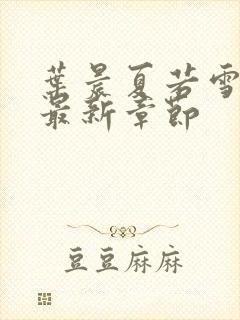 葉晨夏若雪
最新章節
豆豆麻麻